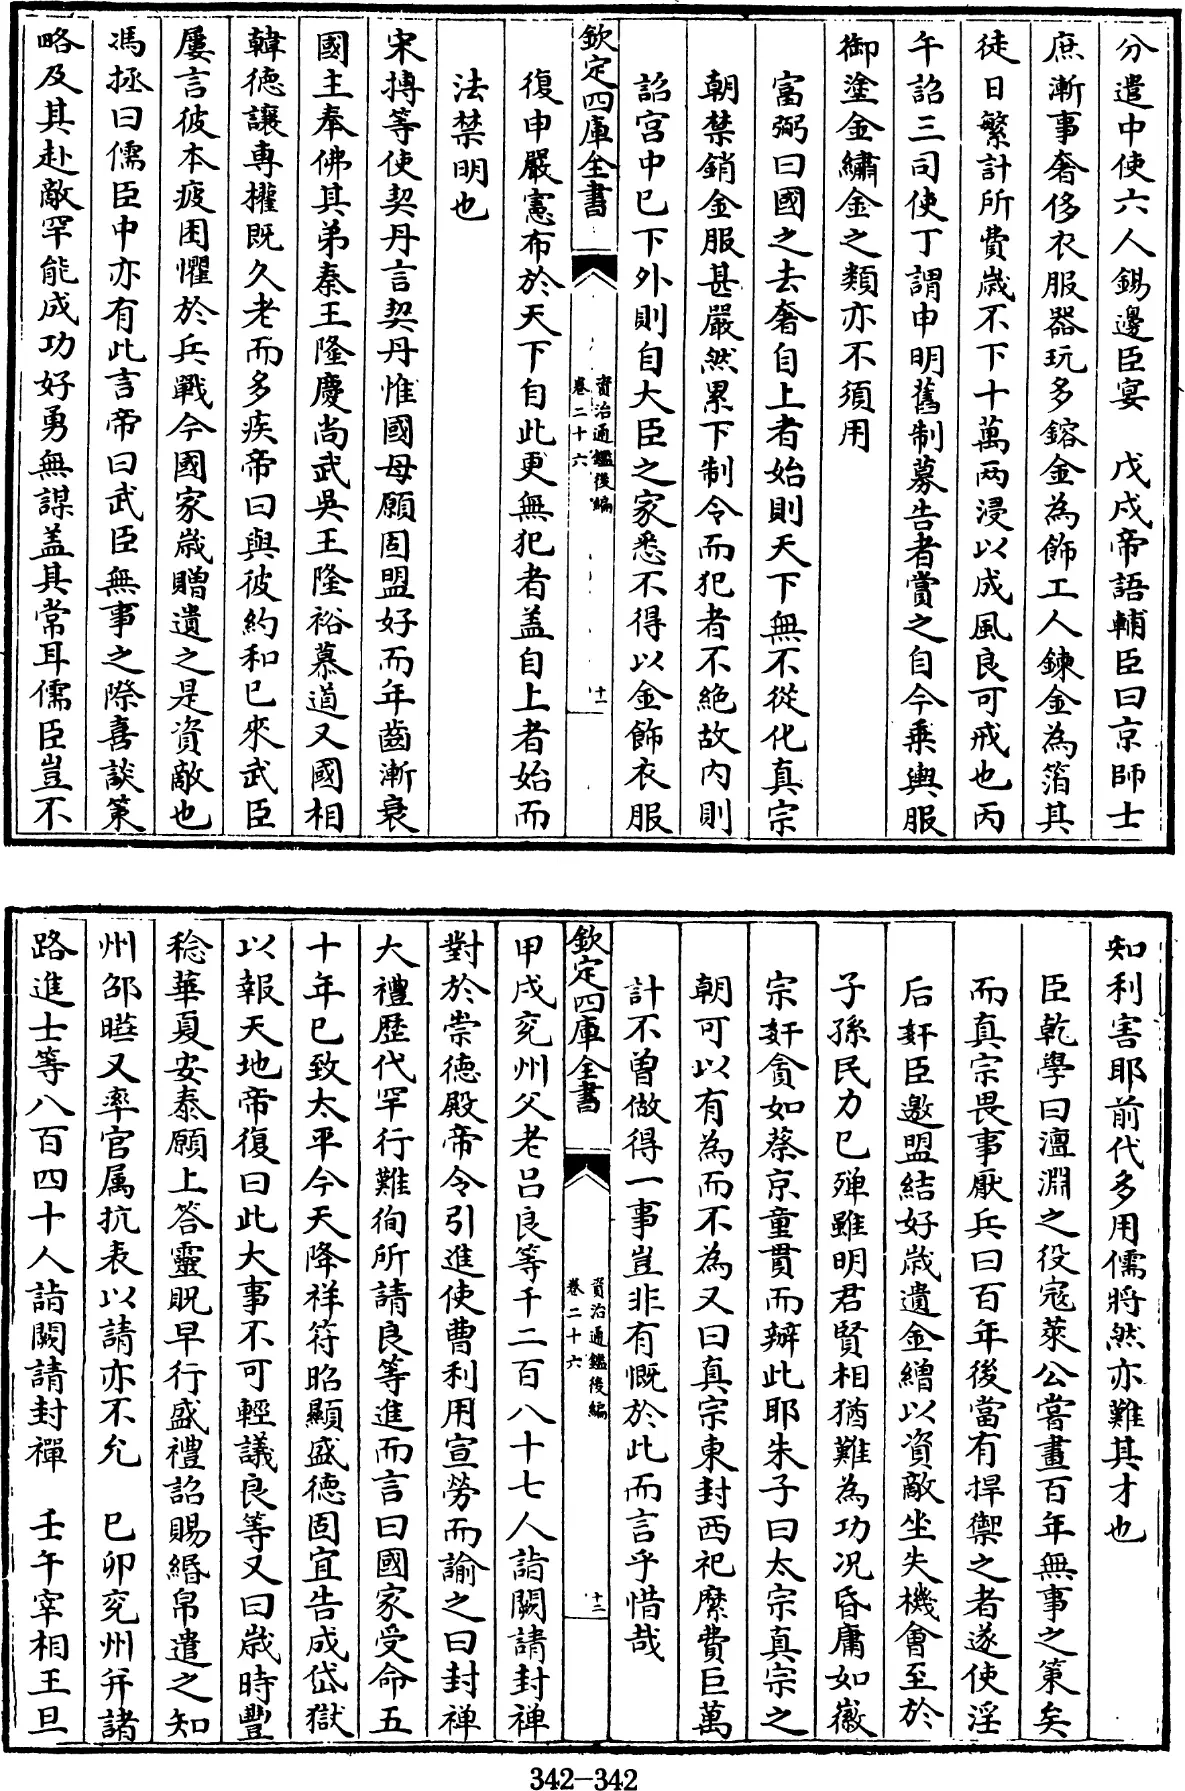 分遣中使六人錫邊臣宴　戊戌帝語輔臣曰京師士
庶漸事奢侈衣服器玩多鎔金為飾工人鍊金為箔其
徒日繁計所費歳不下十萬兩浸以成風良可戒也丙
午詔三司使丁謂申明舊制募告者賞之自今乘輿服
御塗金繡金之類亦不須用
富弼曰國之去奢自上者始則天下無不從化真宗
朝禁銷金服甚嚴然累下制令而犯者不絶故内則
詔宫中已下外則自大臣之家悉不得以金飾衣服
欽定四庫全書
資治通鑑後編
卷二十六
十一
復申嚴憲布於天下自此更無犯者盖自上者始而
法禁明也
宋摶等使契丹言契丹惟國母願固盟好而年齒漸衰
國主奉佛其弟秦王隆慶尚武吳王隆裕慕道又國相
韓德讓専權既久老而多疾帝曰與彼約和已來武臣
屢言彼本疲困懼於兵戰今國家歳贈遺之是資敵也
馮拯曰儒臣中亦有此言帝曰武臣無事之際喜談策
略及其赴敵罕能成功好勇無謀盖其常耳儒臣豈不
知利害耶前代多用儒將然亦難其才也
臣乾學曰澶淵之役寇萊公嘗畫百年無事之策矣
而真宗畏事厭兵曰百年後當有捍禦之者遂使淫
后奸臣邀盟結好歳遺金繒以資敵坐失機會至於
子孫民力已殫雖明君賢相猶難為功况昏庸如徽
宗奸貪如蔡京童貫而辦此耶朱子曰太宗真宗之
朝可以有為而不為又曰真宗東封西祀縻費巨萬
計不曾做得一事豈非有慨於此而言乎惜哉
欽定四庫全書
資治通鑑後編
卷二十六
十二
甲戌兖州父老吕良等千二百八十七人詣闕請封禅
對於崇徳殿帝令引進使曹利用宣勞而諭之曰封禅
大禮歴代罕行難徇所請良等進而言曰國家受命五
十年已致太平今天降祥符昭顯盛德固宜告成岱嶽
以報天地帝復曰此大事不可輕議良等又曰歳時豐
稔華夏安泰願上答靈貺早行盛禮詔賜緡帛遣之知
州邵曄又率官属抗表以請亦不允　已卯兖州并諸
路進士等八百四十人詣闕請封禪　壬午宰相王旦
342-342